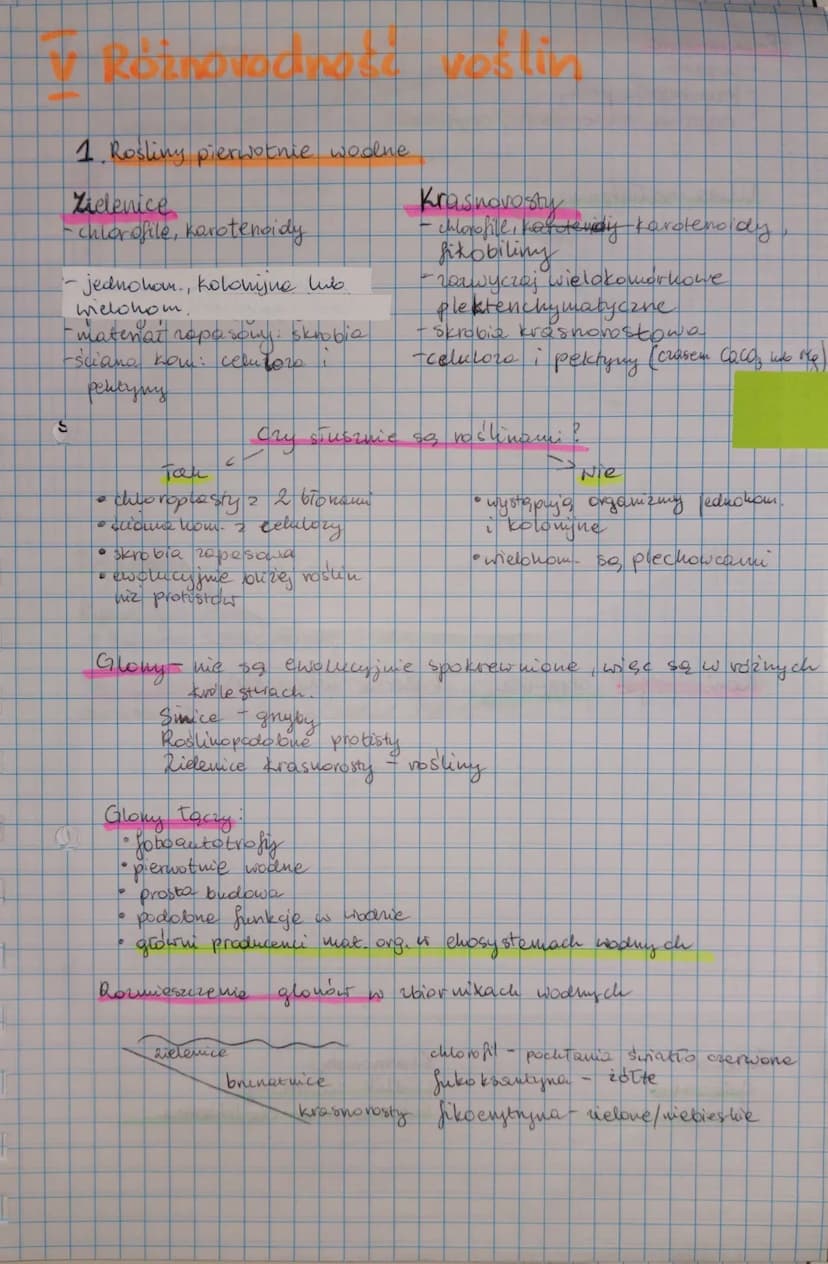 V Różnorodność roślin
1. Rośliny pierwotnie wodne
Zielenice
- chlorofile, karotenoidy
- jednokom., kolonijne lub
wielokom.
- materiał zapasowy: skrobia
- ściana kom: celuloza i
pektyny
Krasnorosty
- chlorofile, karotenoidy,
fikobiliny
- zazwyczaj wielokomórkowe
plektenchymatyczne
- skrobia krasnorostowa
- celuloza i pektyny (czasem CaCO3 lub Mg)
Czy słusznie są roślinami?
Tak
• chloroplasty z 2 błonami
• ściana kom. z celulozy
• skrobia zapasowa
• ewolucyjnie bliżej roślin
niż protistów
Nie
• występują organizmy jednokom.
i kolonijne
• wielokom. są plechowcami
Glony - nie są ewolucyjnie spokrewnione, więc są w różnych
królestwach.
Sinice - gnyby
Roślinopodobne protisty
Zielenice krasnorosty - rośliny
Glony łączy:
• fotoautotrofizy
• pierwotnie wodne
• prosta budowa
• podobne funkcje w wodzie
• główni producenci mat. org. w ekosystemach wodnych
Rozmieszczenie glonów w zbiornikach wodnych
zielenice
brunatnice
krasnorosty
chlorofil - pochłania światło czerwone
fukoksantyna - żółte
fikoerytryna - zielone/niebieskie